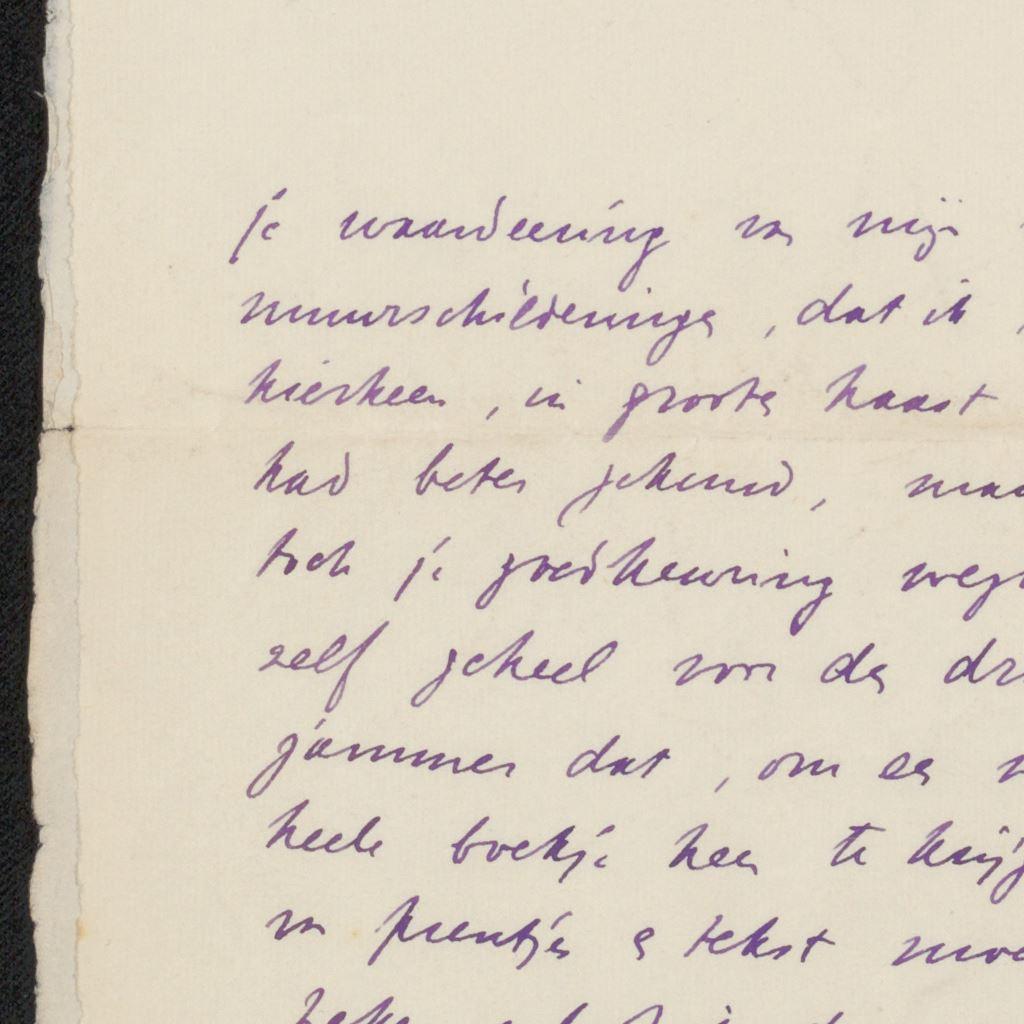 je waardeering van mijn
muurschilderingen, dat ik
hierheen, in groote haast
had beter gekund, maar
toch je goedkeuring
zelf geheel voor de
jammer dat, om een
heele boekje heen te
van prentjes en tekst